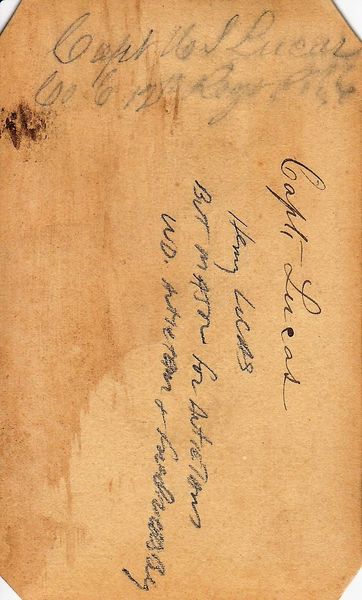 Capt H S Lucas
Co C 12th Regt
Capt. Lucas
Henry Lucas
Bvt MAJOR for ANTIETAM
WD. ANTIETAM & Fredericksburg